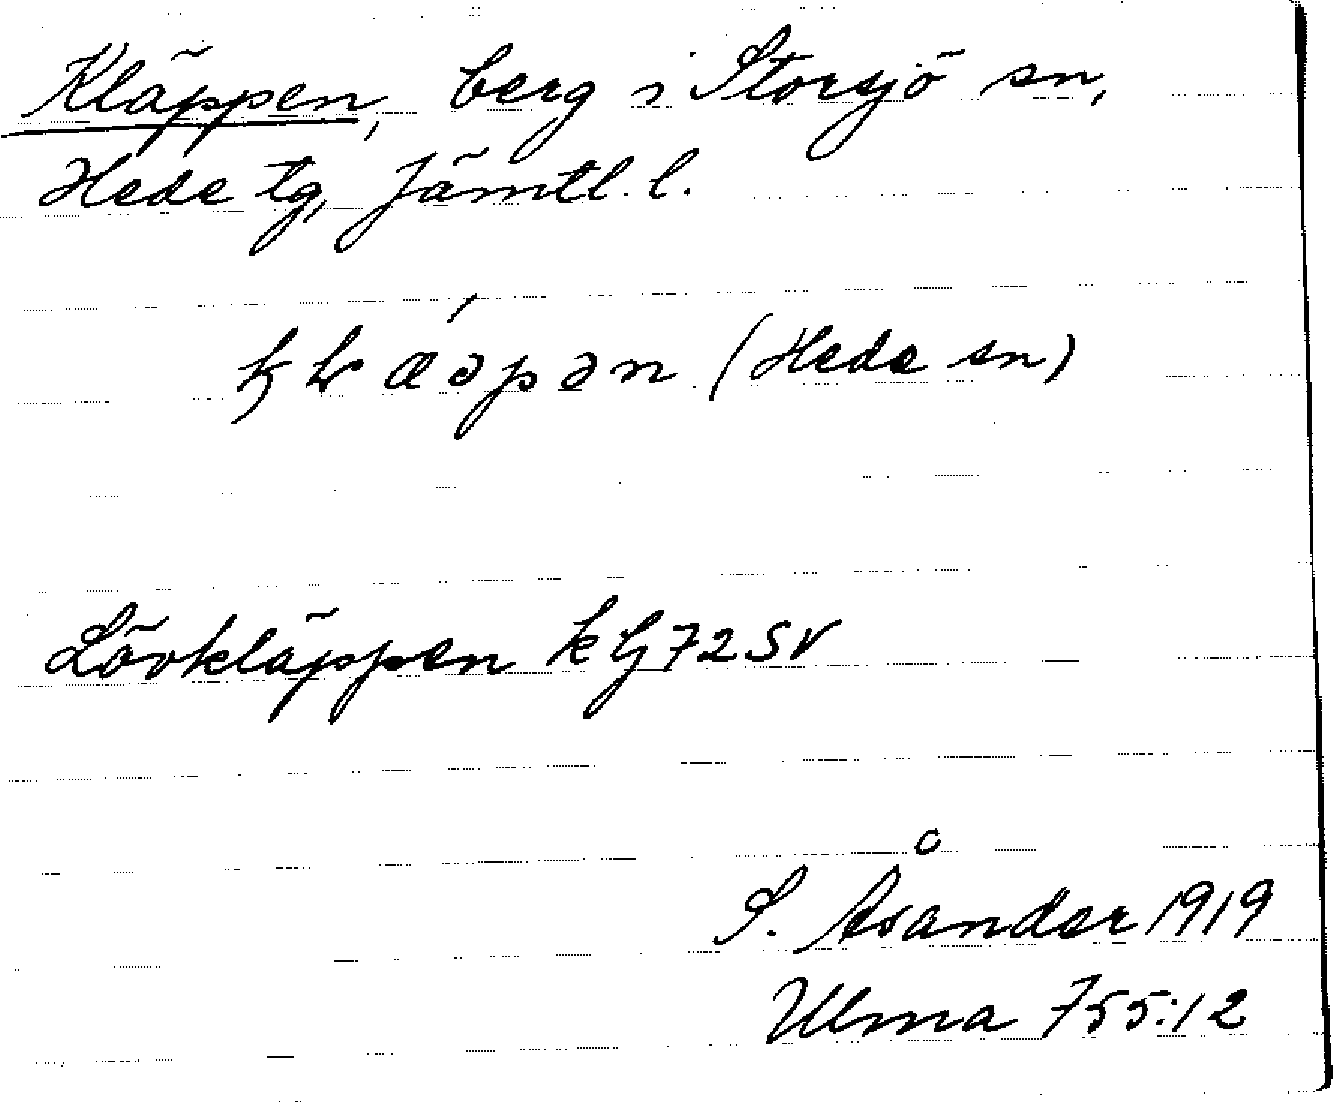 Kläppen, berg i Storsjö sn,
Hede tg, Jämtl. l.
(Hede sn)
Lövkläppen k G72SV
S. Åsander 1919
Ulma 755:12